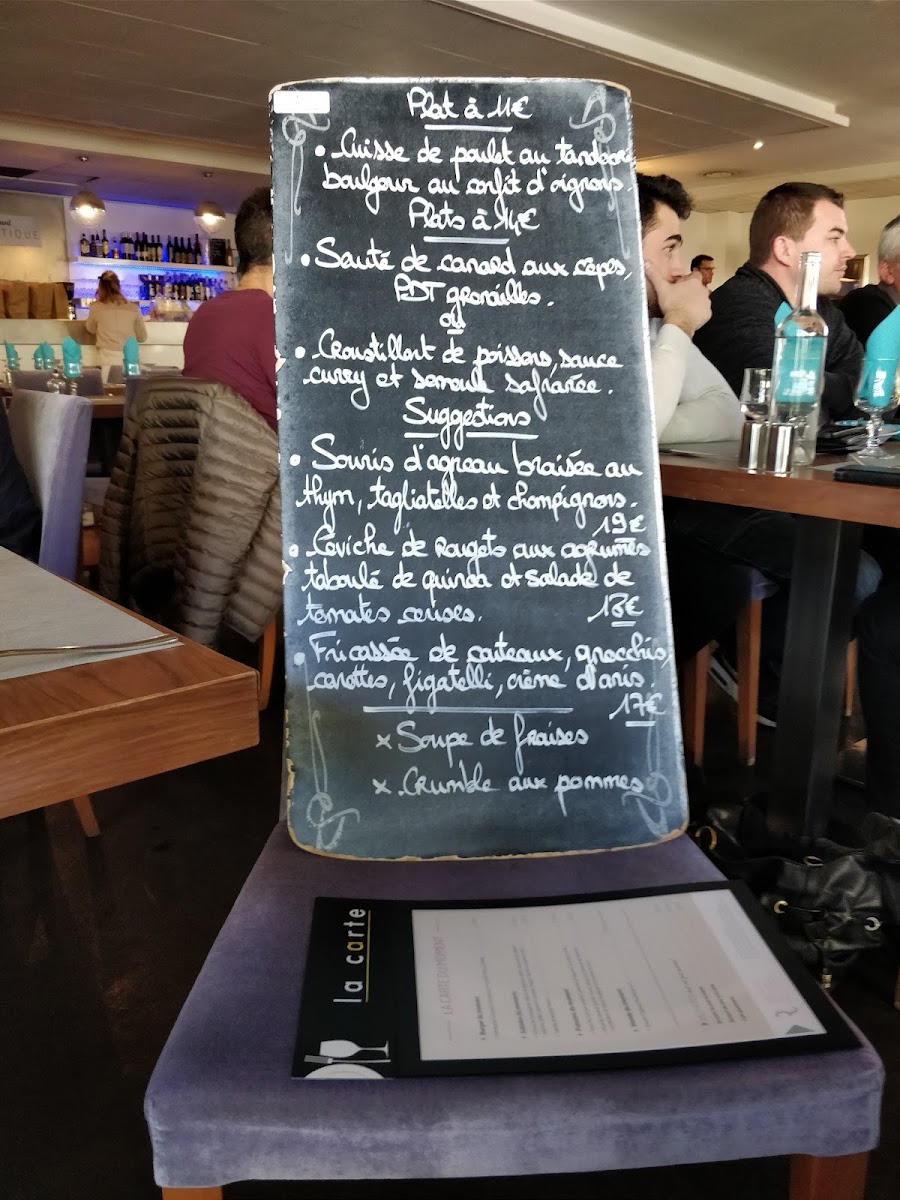 Plat à 11€
• Cuisse de poulet au tandoori
boulgour au confit d'oignons.
Plats à 14€
• Sauté de canard aux cèpes,
PDT grenailles.
ou
• Croustillant de poissons, sauce
curry et semoule safranée.
Suggestions
• Souris d'agneau braisée au
thym, tagliatelles et champignons.
19€
• Ceviche de rougets aux agrumes
taboulé de quinoa et salade de
tomates cerises. 18€
• Fricassée de couteaux, gnocchis,
carottes, figatelli, crème d'anis.
17€
x Soupe de fraises
x Crumble aux pommes
la carte
LA CARTE DU MOMENT
TIQUE